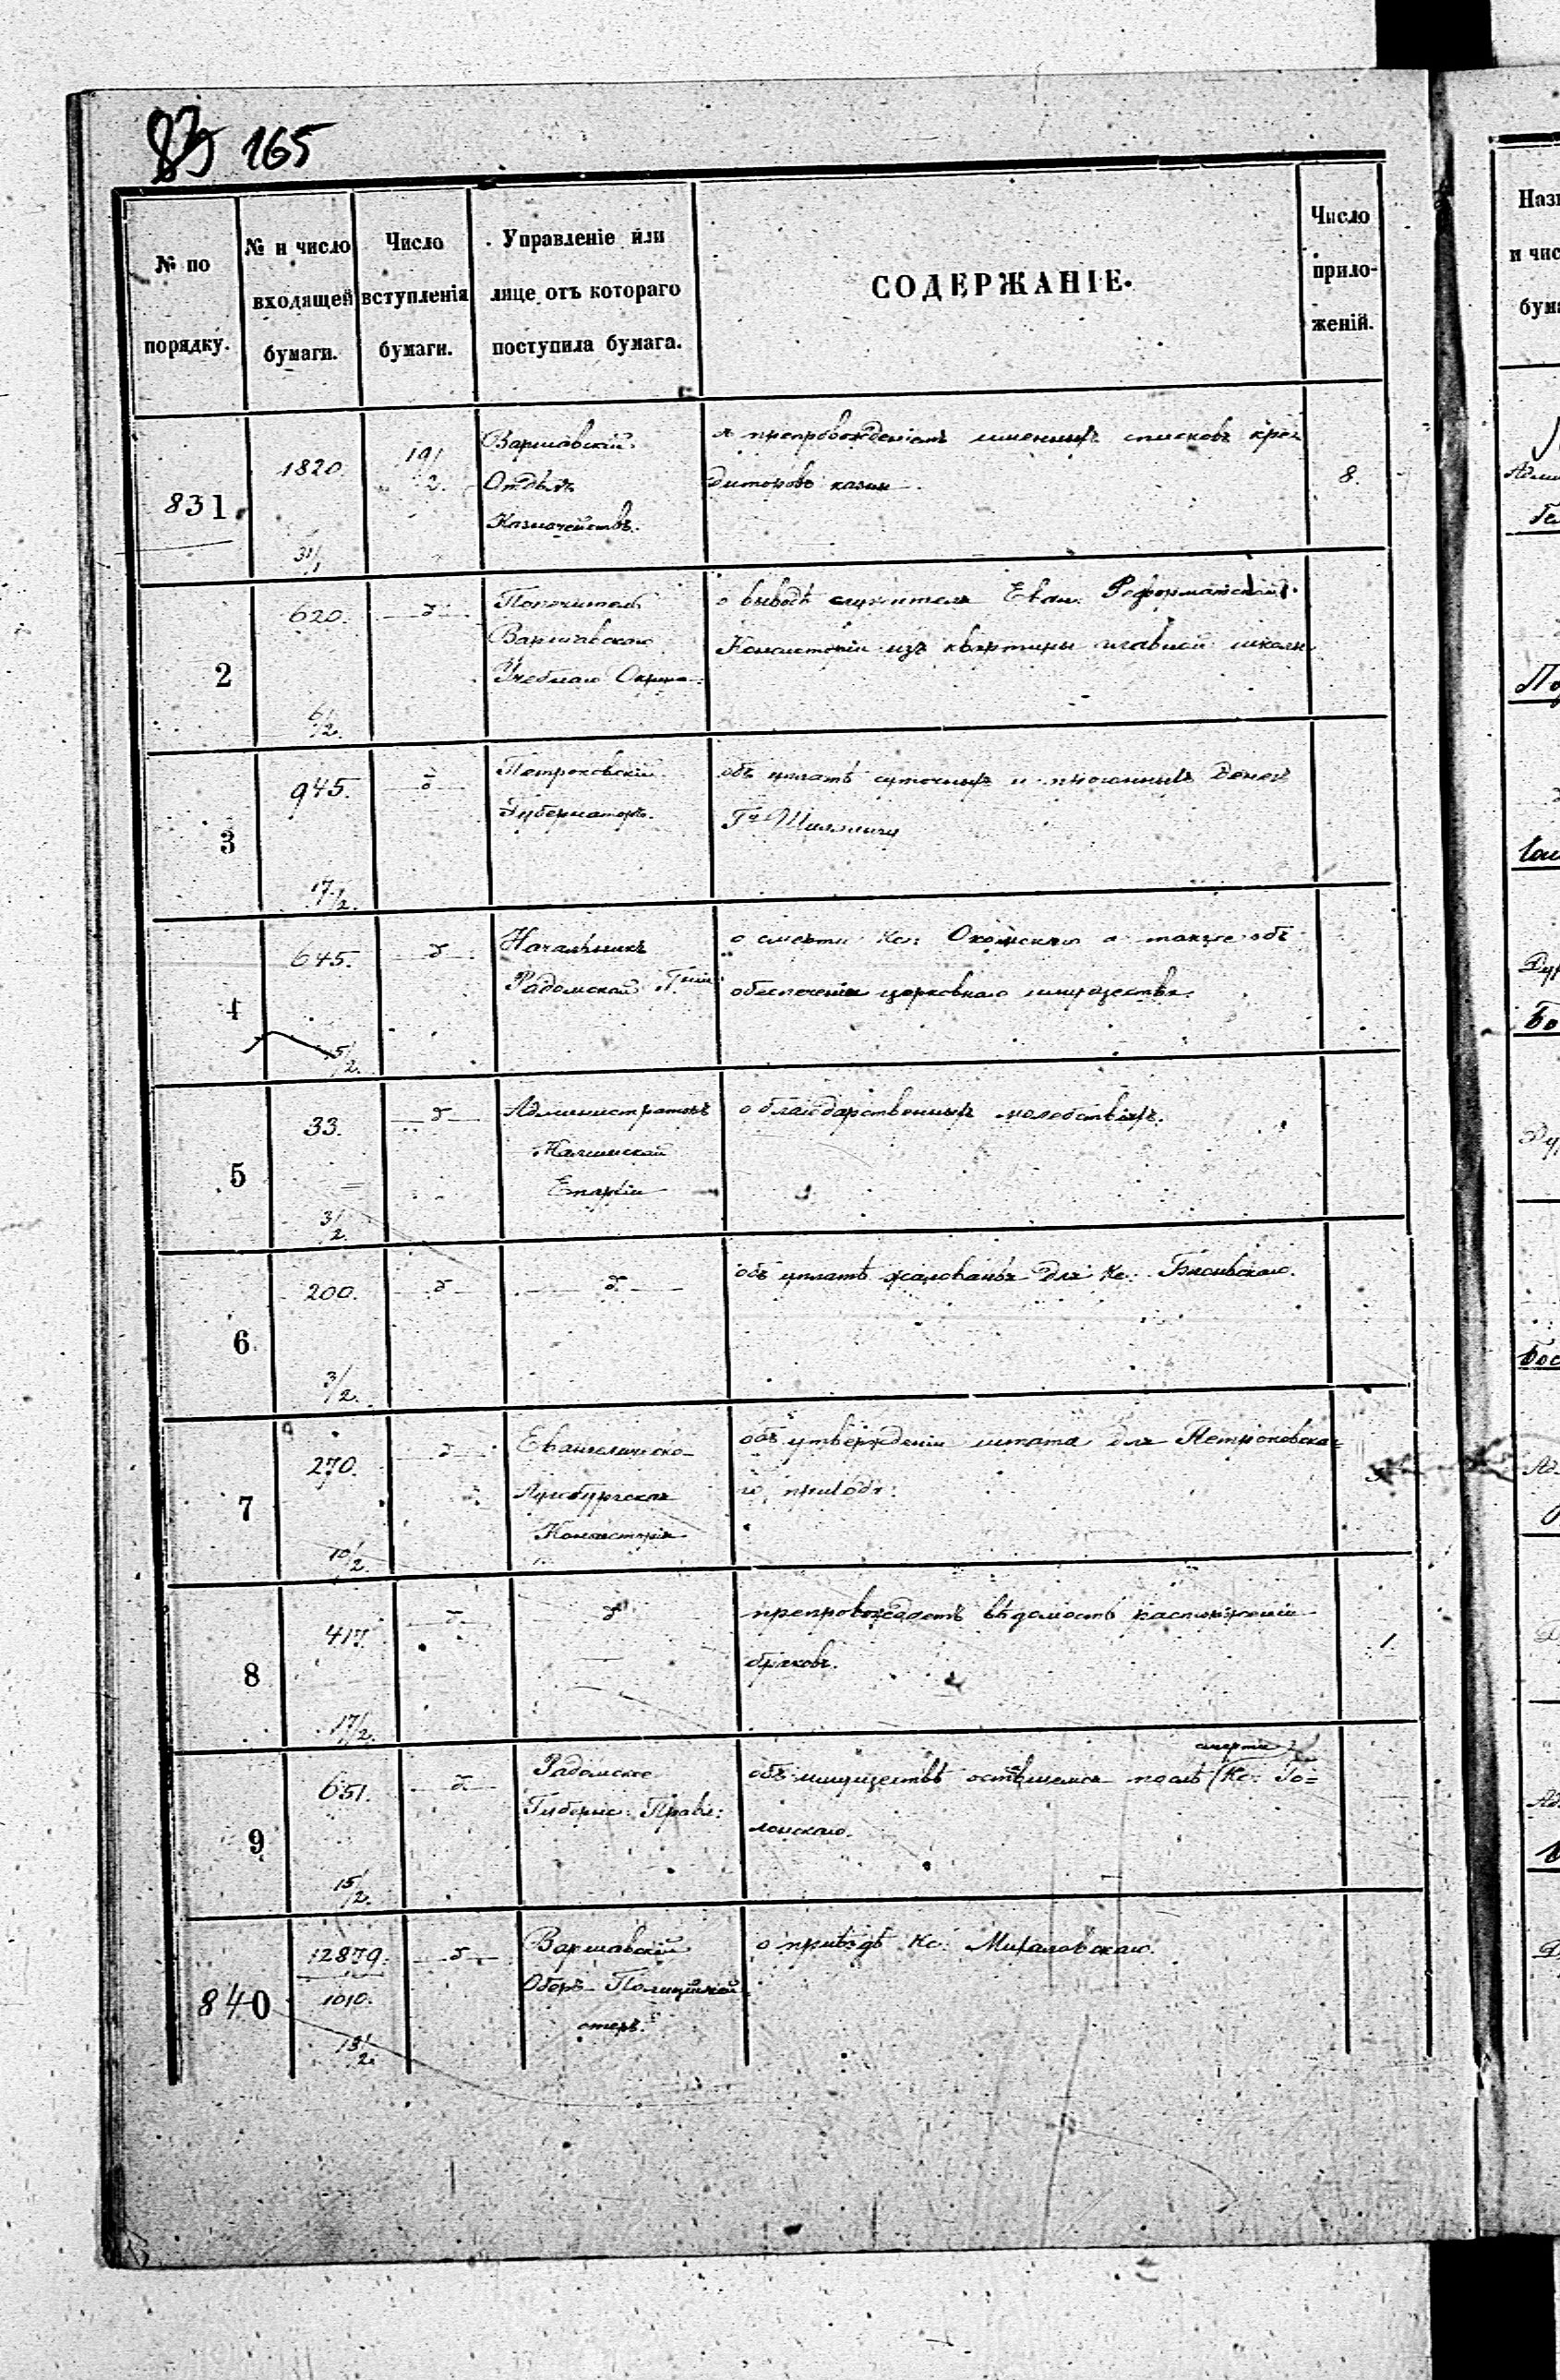 83 165
№ по порядку.
№ и число входящей бумаги.
Число вступленія бумаги.
Управленіе или лице отъ котораго поступила бумага.
СОДЕРЖАНІЕ.
Число приложеній.
831.
1820.
31/1
19/2.
Варшавскій
Отдѣл.
Казначействъ.
съ препровожденіемъ именныхъ списковъ кре-
диторовъ казны.
8.
2
620.
6/2.
Попечитель
Варшавскаго
Учебнаго Округа.
о выводѣ служителя Еван. Реформатской
Консисторіи изъ квартиры главной школы
3
945.
17/2.
Петроковскій
Губернаторъ.
объ уплатѣ суточныхъ и прогонныхъ денегъ
Гну
4
645.
15/2.
Начальникъ
Радомской Губніи
о смерти Кс: а также объ
обеспеченіи церковнаго имущества.
5
33.
3/2.
Администраторъ
Епархіи
о благодарственныхъ молебствіяхъ.
6
200.
3/2.
объ уплатѣ жалованья для Кс:
7
270.
10/2.
Евангелическо-
Аугсбургская
Консисторія
объ утвержденіи штата для Петроковска-
го прихода.
8
417.
17/2.
препровождаетъ вѣдомость расторженій
браковъ.
1.
9
651.
15/2.
Радомское
Губерн: Правл:
смерти
объ имуществѣ оставшемся послѣ Кс: Го-
лонскаго.
840
12879.
1010.
13/2.
Варшавскій
Оберъ-Полицій-
мейстеръ.
о пріѣздѣ Кс: Михаловскаго.